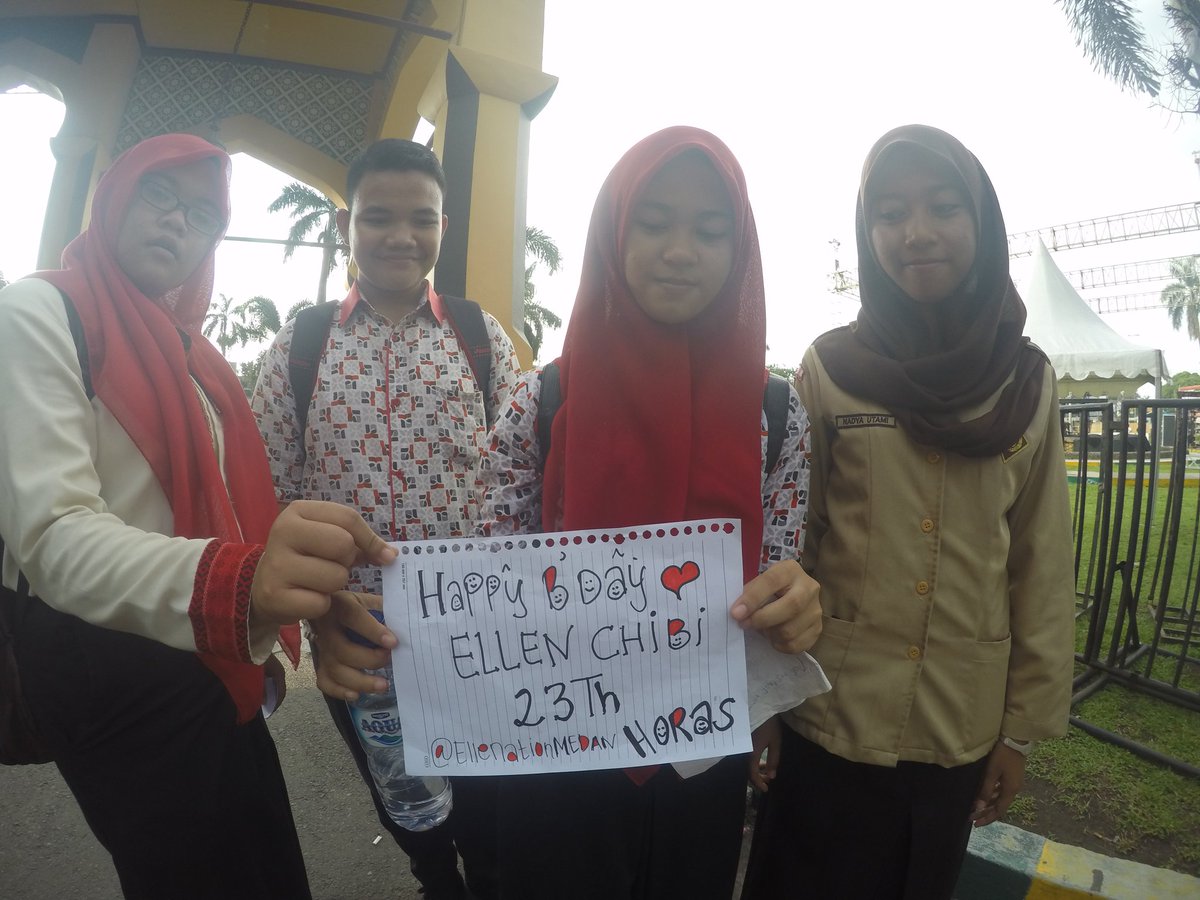 NADYA UTAMI
Happy B'Day
ELLEN CHiBi
23Th
@EllenationMEDAN HORAS
AQUA